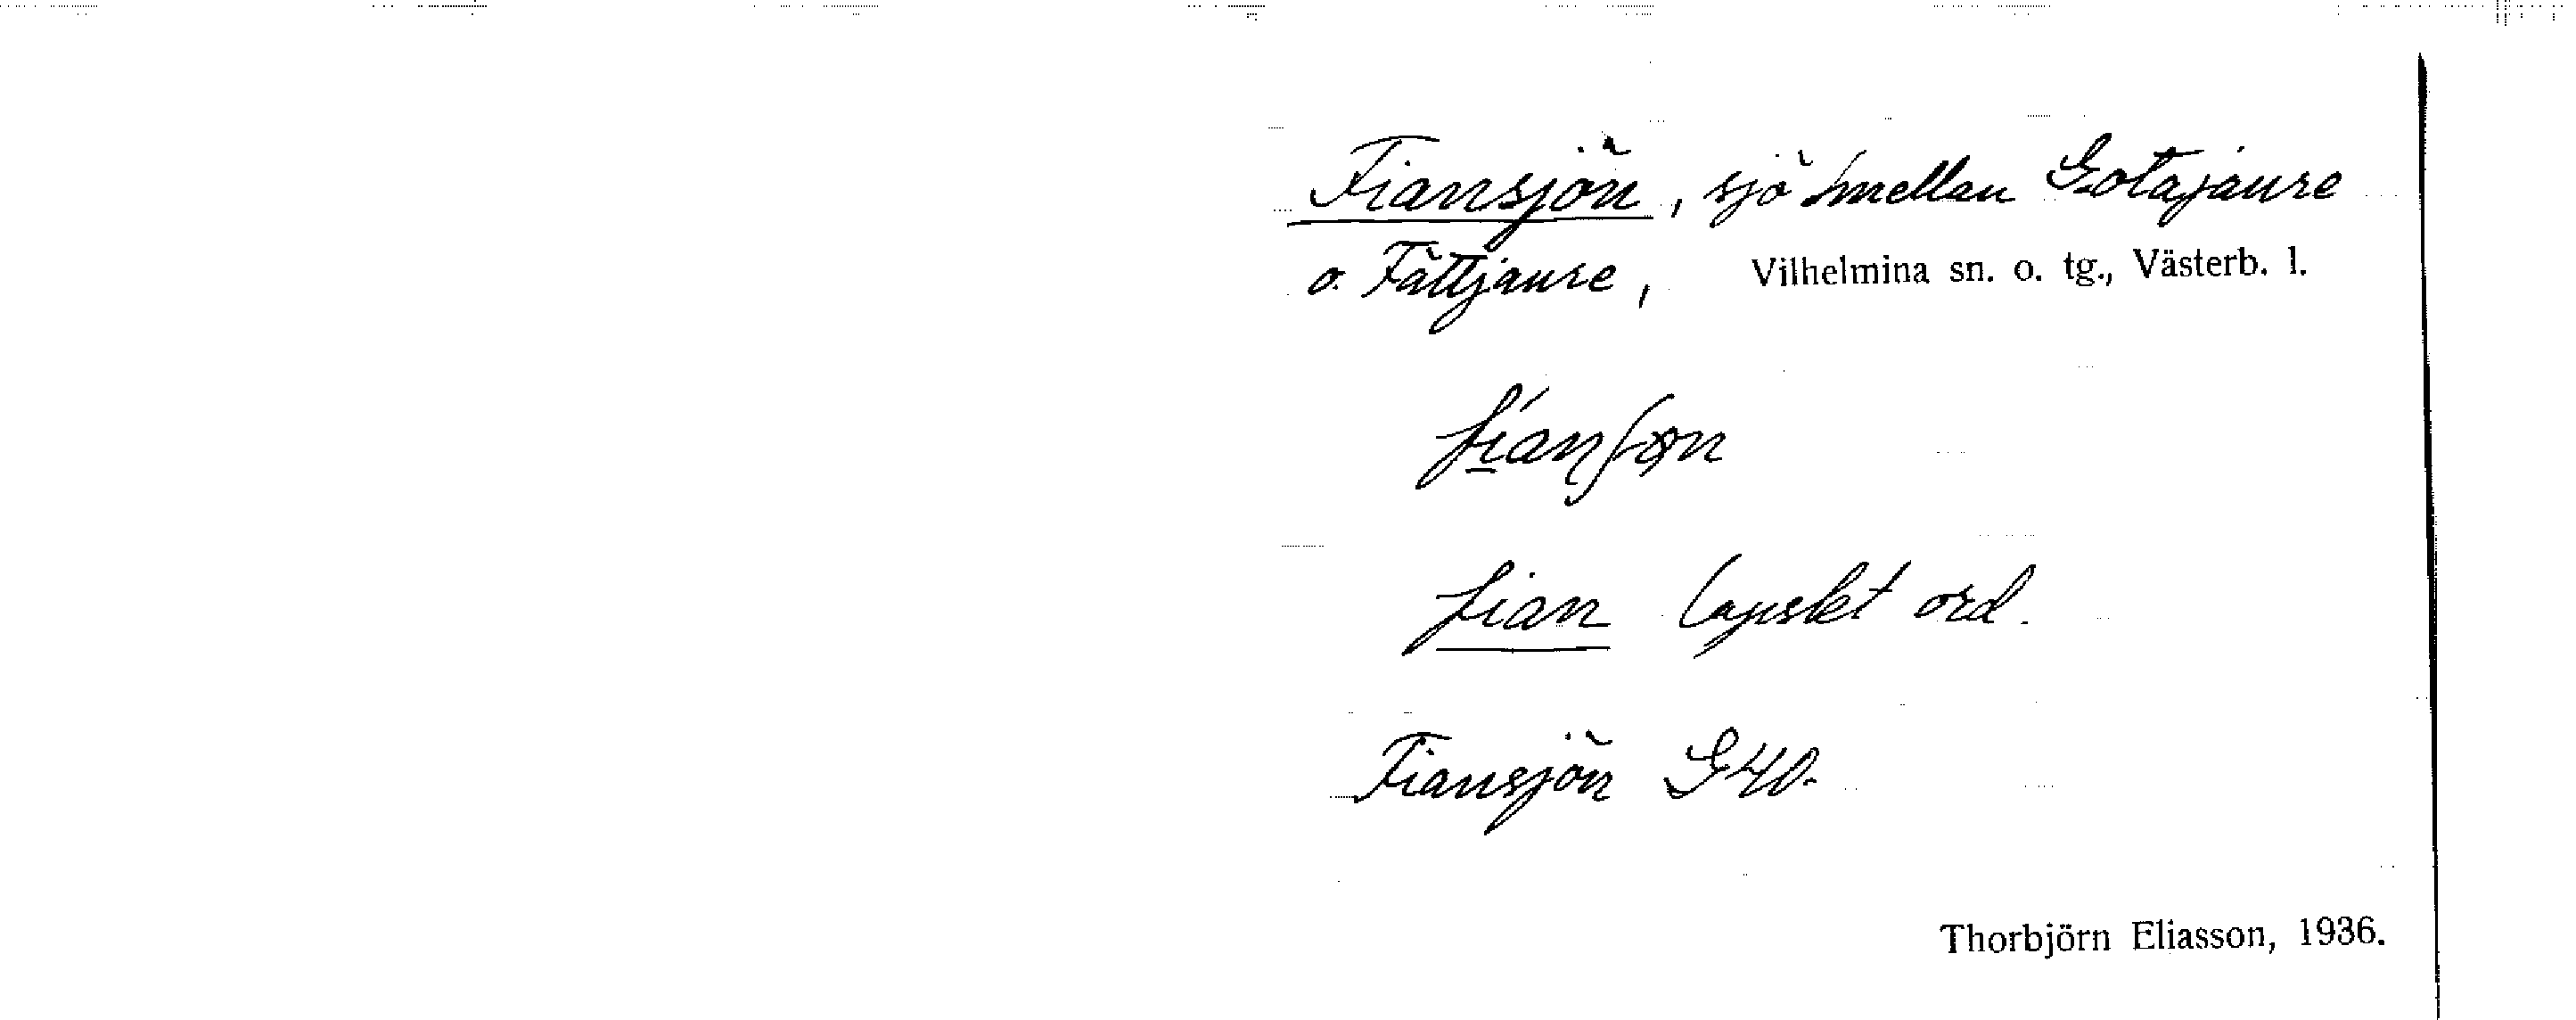 Fiansjön, sjö mellan Gotajaure
o. Fättjaure, Vilhelmina sn. o. tg., Västerb. l.
fian lapskt ord.
Fiansjön G40.
Thorbjörn Eliasson, 1936.